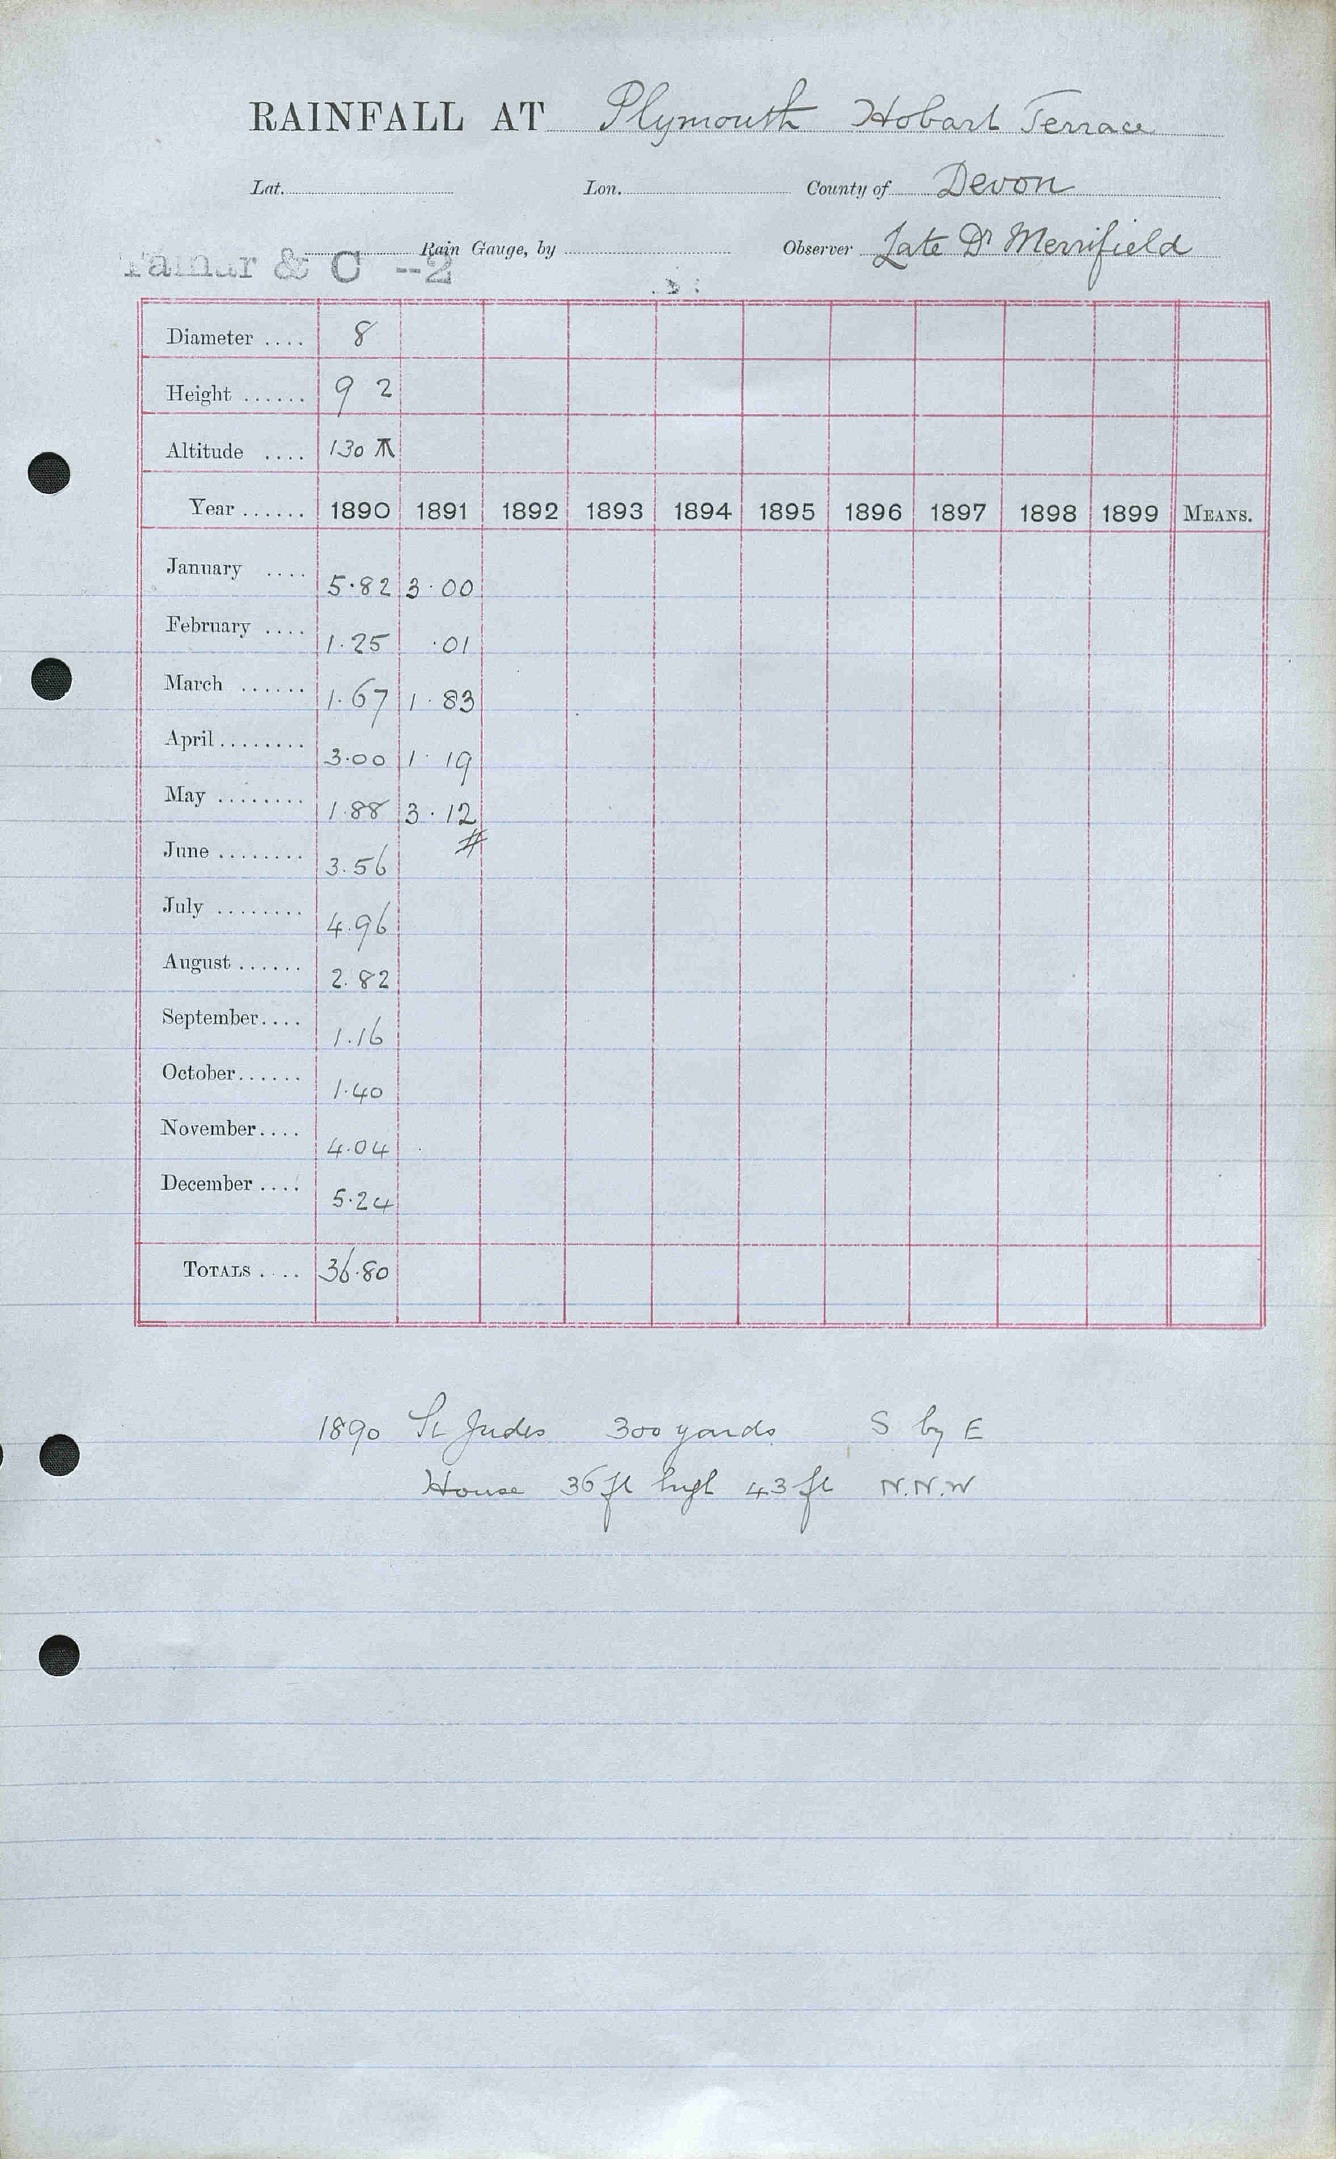 RAINFALL AT Plymouth Hobart Terrace
Lat. Lon. County of Devon
Rain Gauge, by Observer Late Dr Merrifield
Tamar & C --2
Diameter .... 8
Height ...... 9 2
Altitude .... 130
Year ...... 1890 1891 1892 1893 1894 1895 1896 1897 1898 1899 MEANS.
January .... 5.82 3.00
February .... 1.25 .01
March ...... 1.67 1.83
April ........ 3.00 1.19
May ........ 1.88 3.12
#
June ........ 3.56
July ........ 4.96
August ...... 2.82
September.... 1.16
October...... 1.40
November.... 4.04
December .... 5.24
TOTALS .... 36.80
1890 St Judes 300 yards S by E
House 36 ft high 43 ft N.N.W